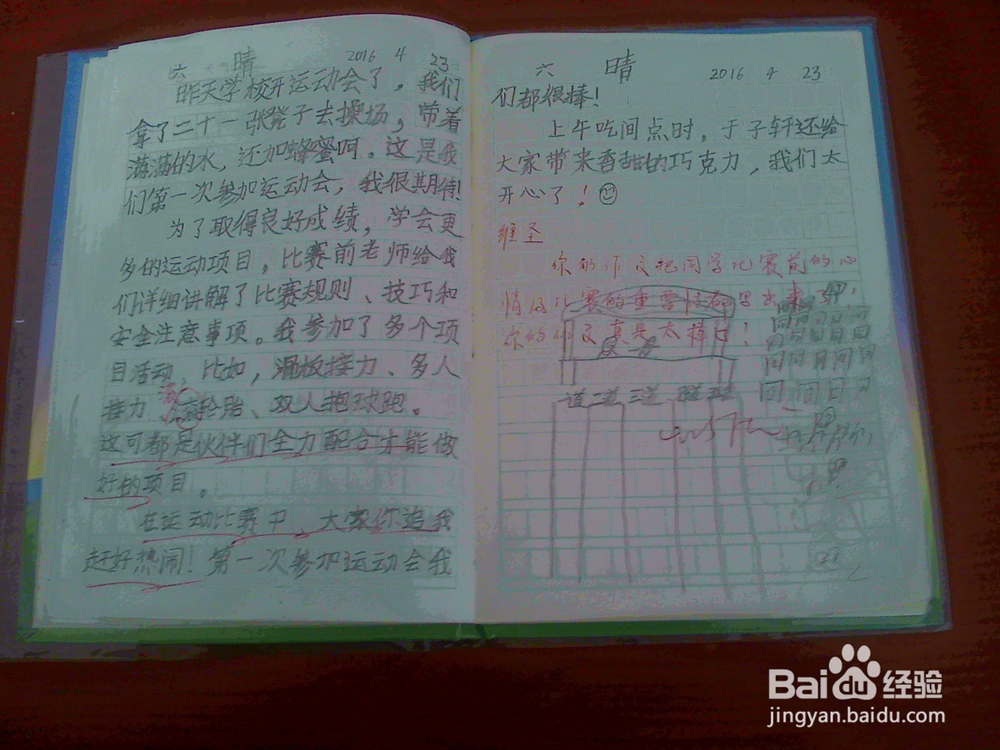 六 晴 2016 4 23
昨天学校开运动会了，我们
拿了二十一张凳子去操场，带着
满满的水，还加蜂蜜呵。这是我
们第一次参加运动会，我很期待!
为了取得良好成绩，学会更
多的运动项目，比赛前老师给我
们详细讲解了比赛规则、技巧和
安全注意事项。我参加了多个项
目活动，比如，滑板接力、多人
接力、滚轮胎、双人抱球跑。
这可都是伙伴们全力配合才能做
好的项目。
在运动比赛中，大家你追我
赶好热闹！第一次参加运动会我
六 晴 2016 4 23
们都很棒！
上午吃间点时，于子轩还给
大家带来香甜的巧克力，我们太
开心了！
你的作文把同学比赛前的心
情及比赛的
你的作文真是太棒了！
一道二道三道
Baidu经验
jingyan.baidu.com